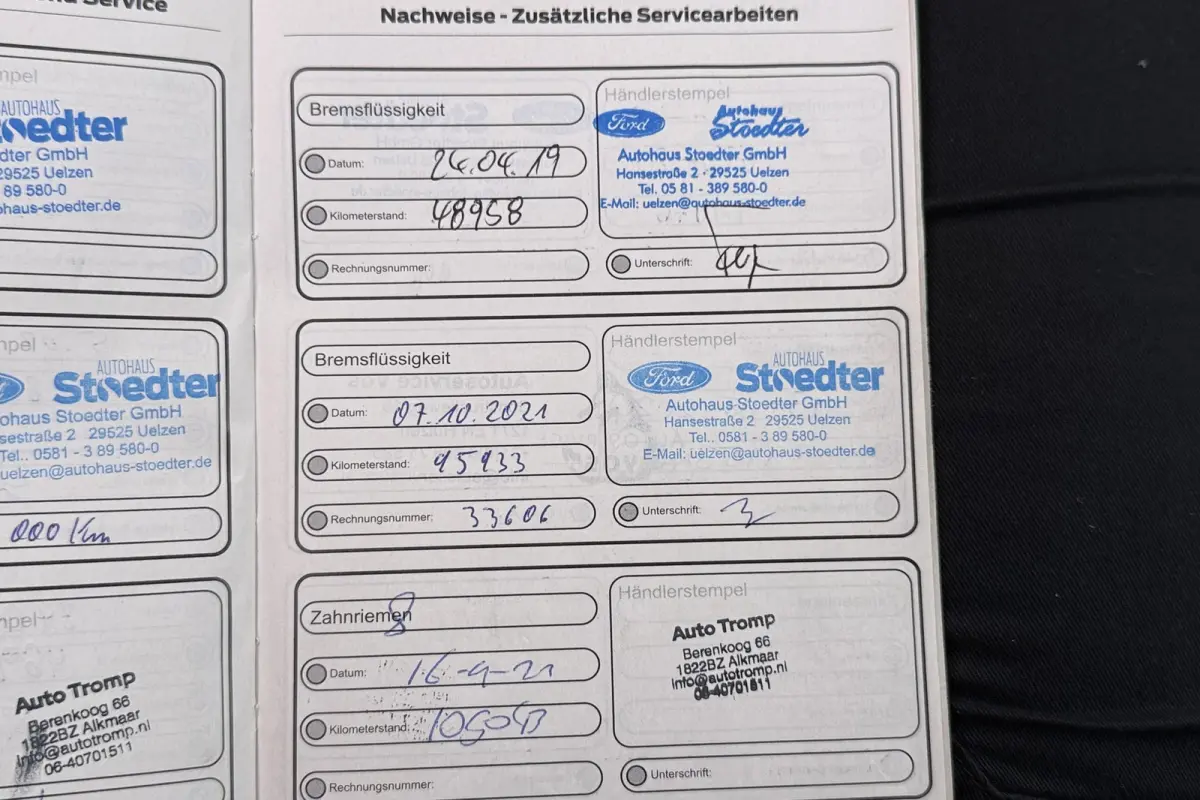 nd Service
mpel
AUTOHAUS
Stoedter
dter GmbH
29525 Uelzen
89 580-0
ohaus-stoedter.de
mpel
AUTOHAUS
Stoedter
ohaus Stoedter GmbH
sestraße 2 29525 Uelzen
Tel.. 0581 - 3 89 580-0
uelzen@autohaus-stoedter.de
000 Km
mpel
Auto Tromp
Berenkoog 66
1822BZ Alkmaar
info@autotromp.nl
06-40701511
Nachweise - Zusätzliche Servicearbeiten
Bremsflüssigkeit
Datum: 24.04.19
Kilometerstand: 48958
Rechnungsnummer:
Händlerstempel
Ford Autohaus
Stoedter
Autohaus Stoedter GmbH
Hansestraße 2 · 29525 Uelzen
Tel. 05 81 - 389 580-0
E-Mail: uelzen@autohaus-stoedter.de
Unterschrift:
Bremsflüssigkeit
Datum: 07.10.2021
Kilometerstand: 95933
Rechnungsnummer: 33606
Händlerstempel
AUTOHAUS
Ford Stoedter
Autohaus Stoedter GmbH
Hansestraße 2 29525 Uelzen
Tel.. 0581 - 3 89 580-0
E-Mail: uelzen@autohaus-stoedter.de
Unterschrift:
Zahnriemen
Datum:
Kilometerstand:
Rechnungsnummer:
Händlerstempel
Auto Tromp
Berenkoog 66
1822BZ Alkmaar
info@autotromp.nl
06-40701511
Unterschrift: